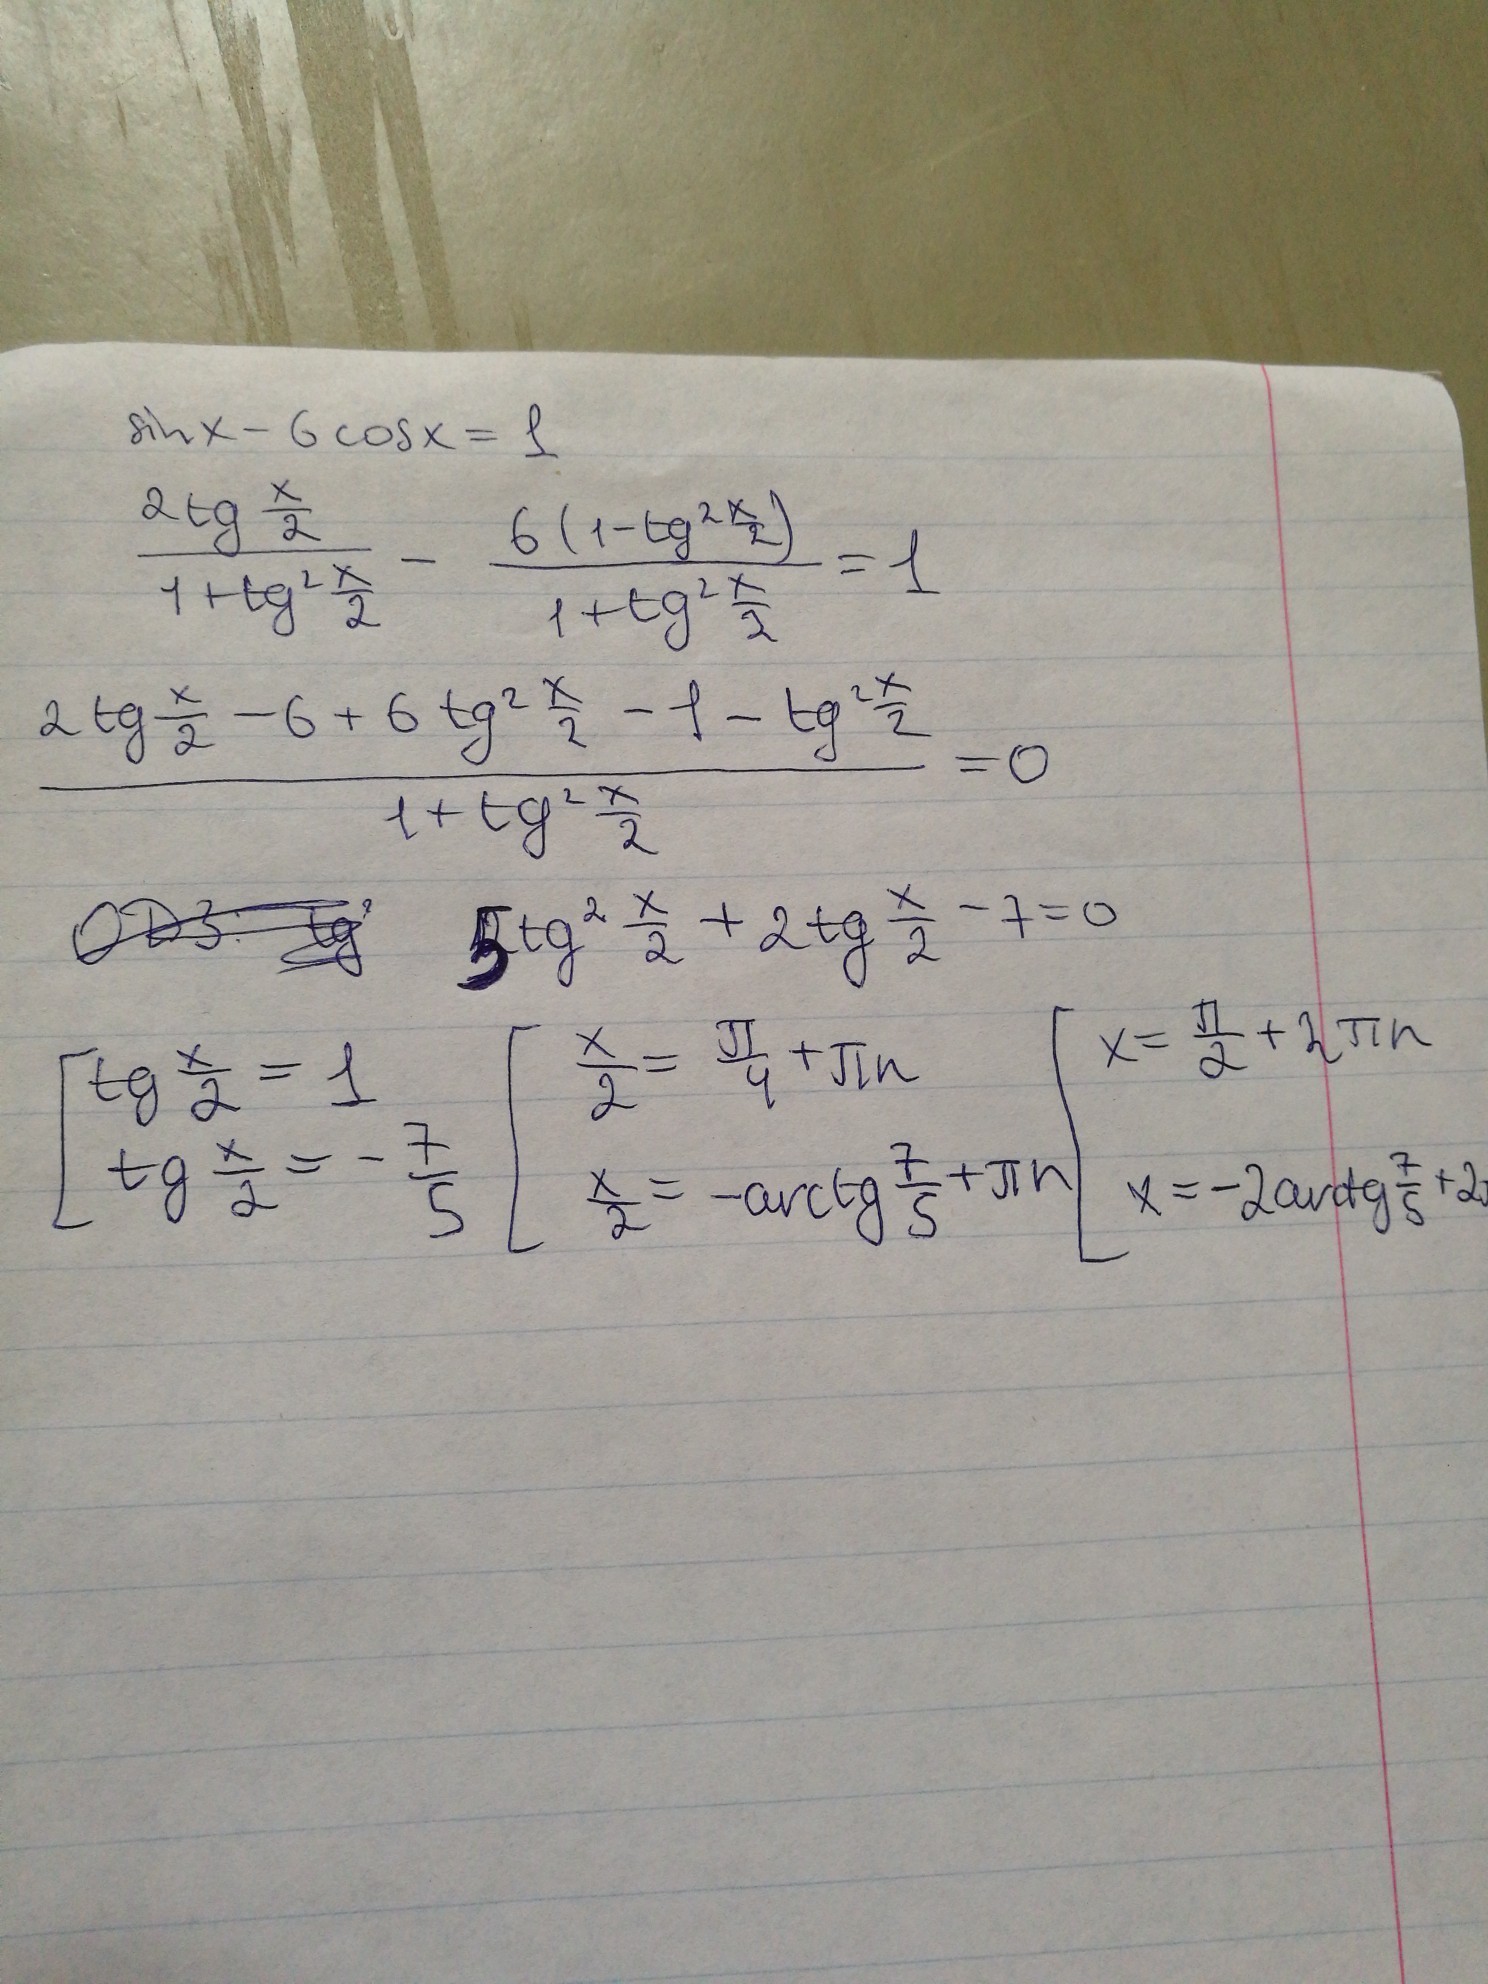 sinx - 6cosx = 1
2tg x/2 / 1+tg² x/2 - 6(1-tg² x/2) / 1+tg² x/2 = 1
2tg x/2 - 6 + 6tg² x/2 - 1 - tg² x/2 / 1+tg² x/2 = 0
ОДЗ: tg² 5tg² x/2 + 2tg x/2 - 7 = 0
[ tg x/2 = 1 [ x/2 = π/4 + πn [ x = π/2 + 2πn
tg x/2 = - 7/5 x/2 = -arctg 7/5 + πn x = -2arctg 7/5 + 2